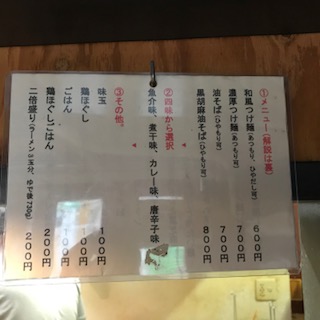 ①メニュー(解説は裏)
和風つけ麺(あつもり、ひやだし可) 600
濃厚つけ麺(あつもり可) 700
油そば(ひやもり可) 700
黒胡麻油そば(ひやもり可) 800円
②四味から選択
魚介味、煮干味、カレー味、唐辛子味
③その他。
味玉 100円
鶏ほぐし 100円
ごはん 100円
鶏ほぐしごはん 200円
二倍盛り(ラーメン3玉分、ゆで後730g) 200円